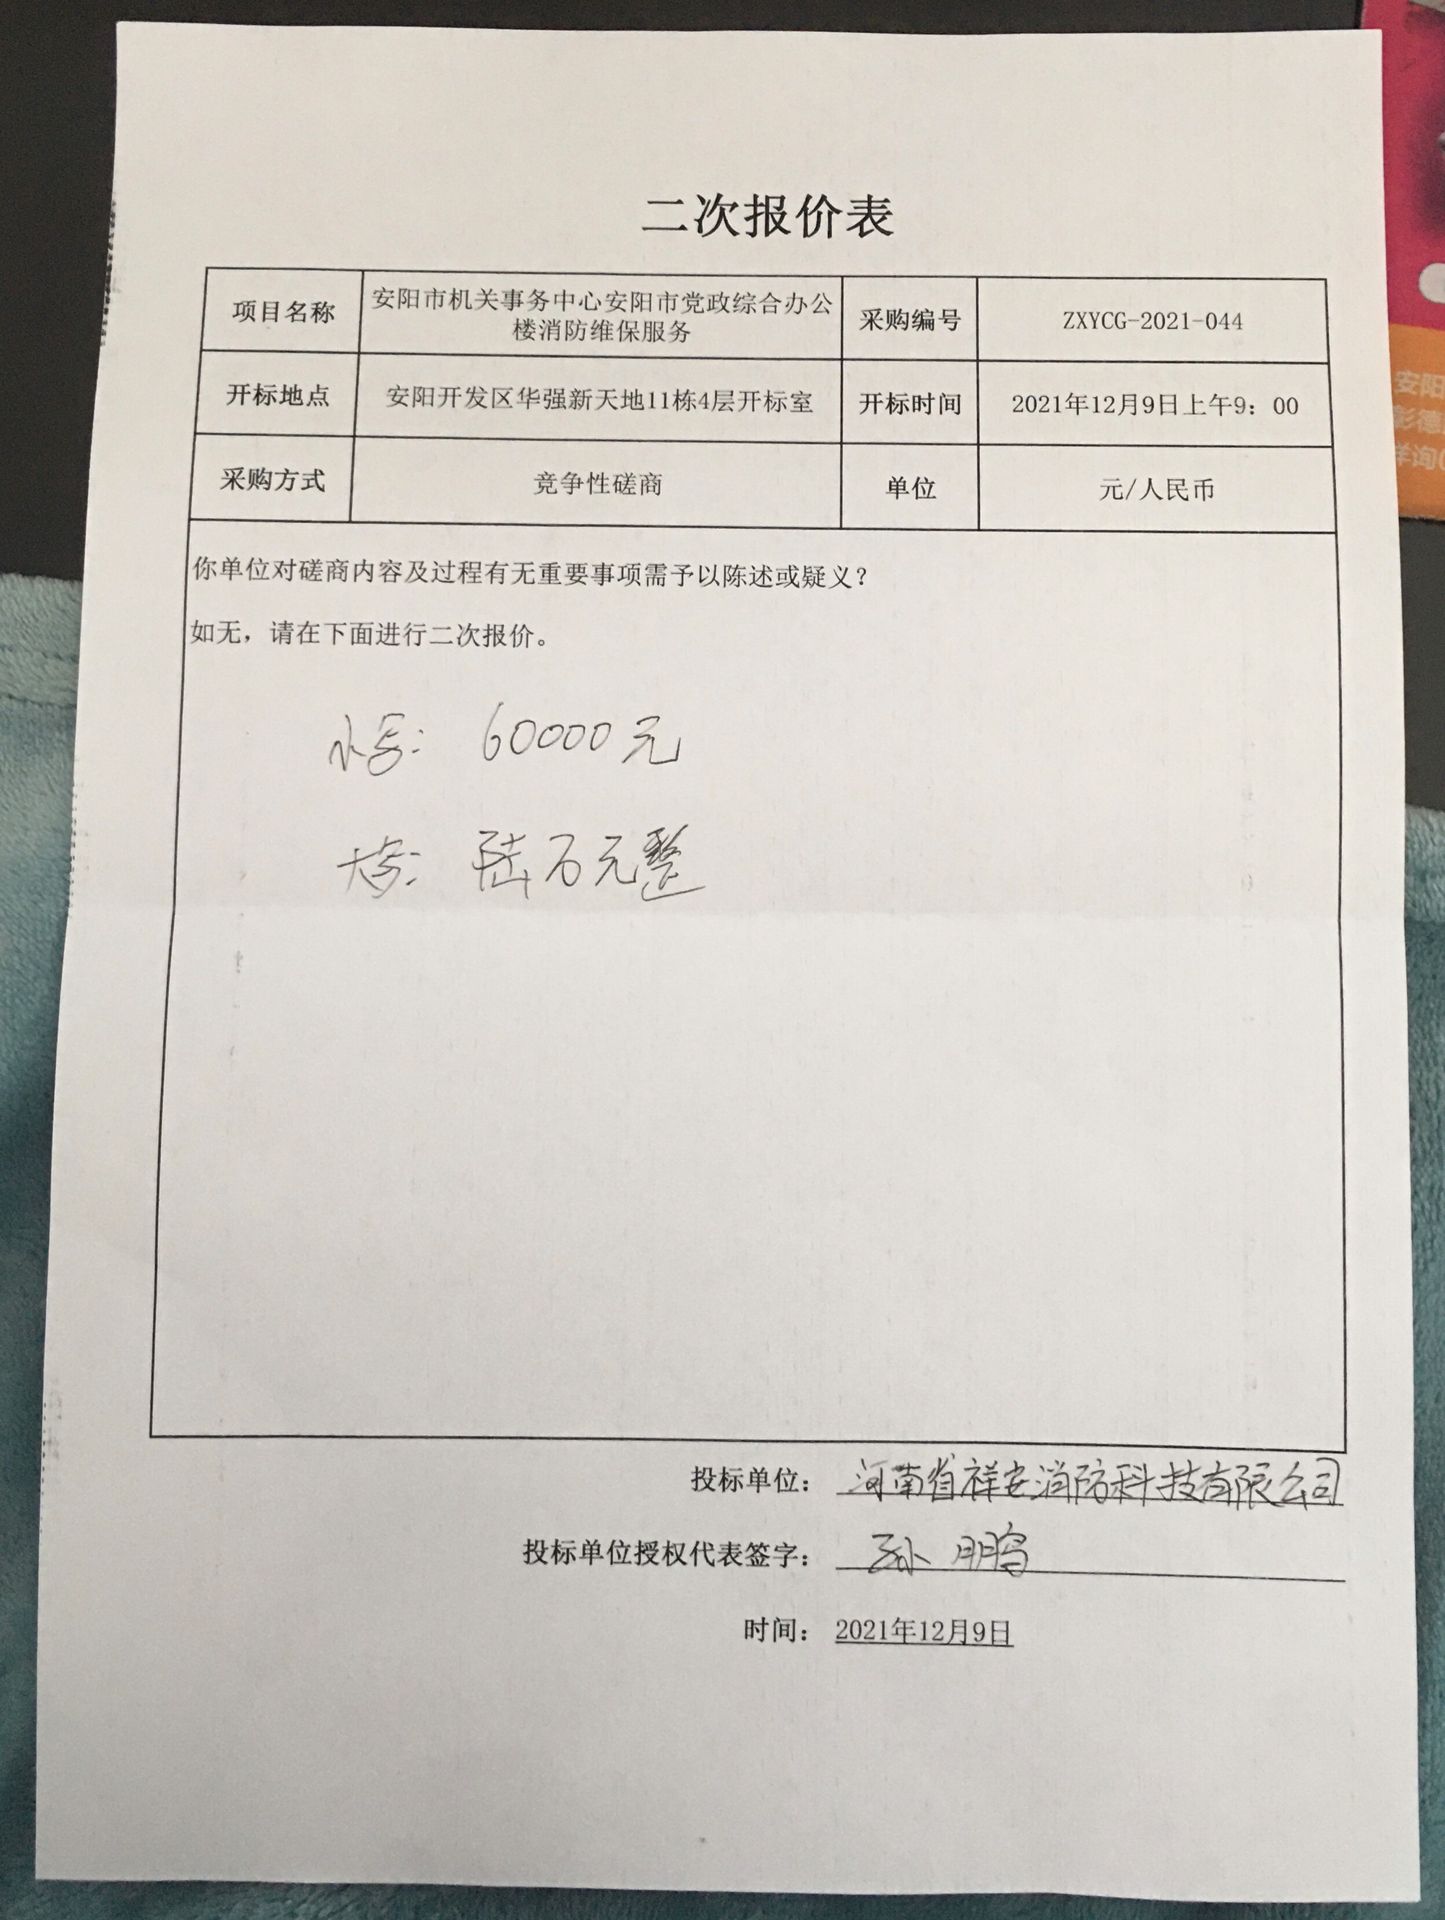 二次报价表
项目名称 安阳市机关事务中心安阳市党政综合办公楼消防维保服务 采购编号 ZXYCG-2021-044
开标地点 安阳开发区华强新天地11栋4层开标室 开标时间 2021年12月9日上午9：00
采购方式 竞争性磋商 单位 元/人民币
你单位对磋商内容及过程有无重要事项需予以陈述或疑义？
如无，请在下面进行二次报价。
小写： 60000元
大写： 陆万元整
投标单位： 河南省祥安消防科技有限公司
投标单位授权代表签字： 孙鹏
时间： 2021年12月9日
安阳
彭德
详询